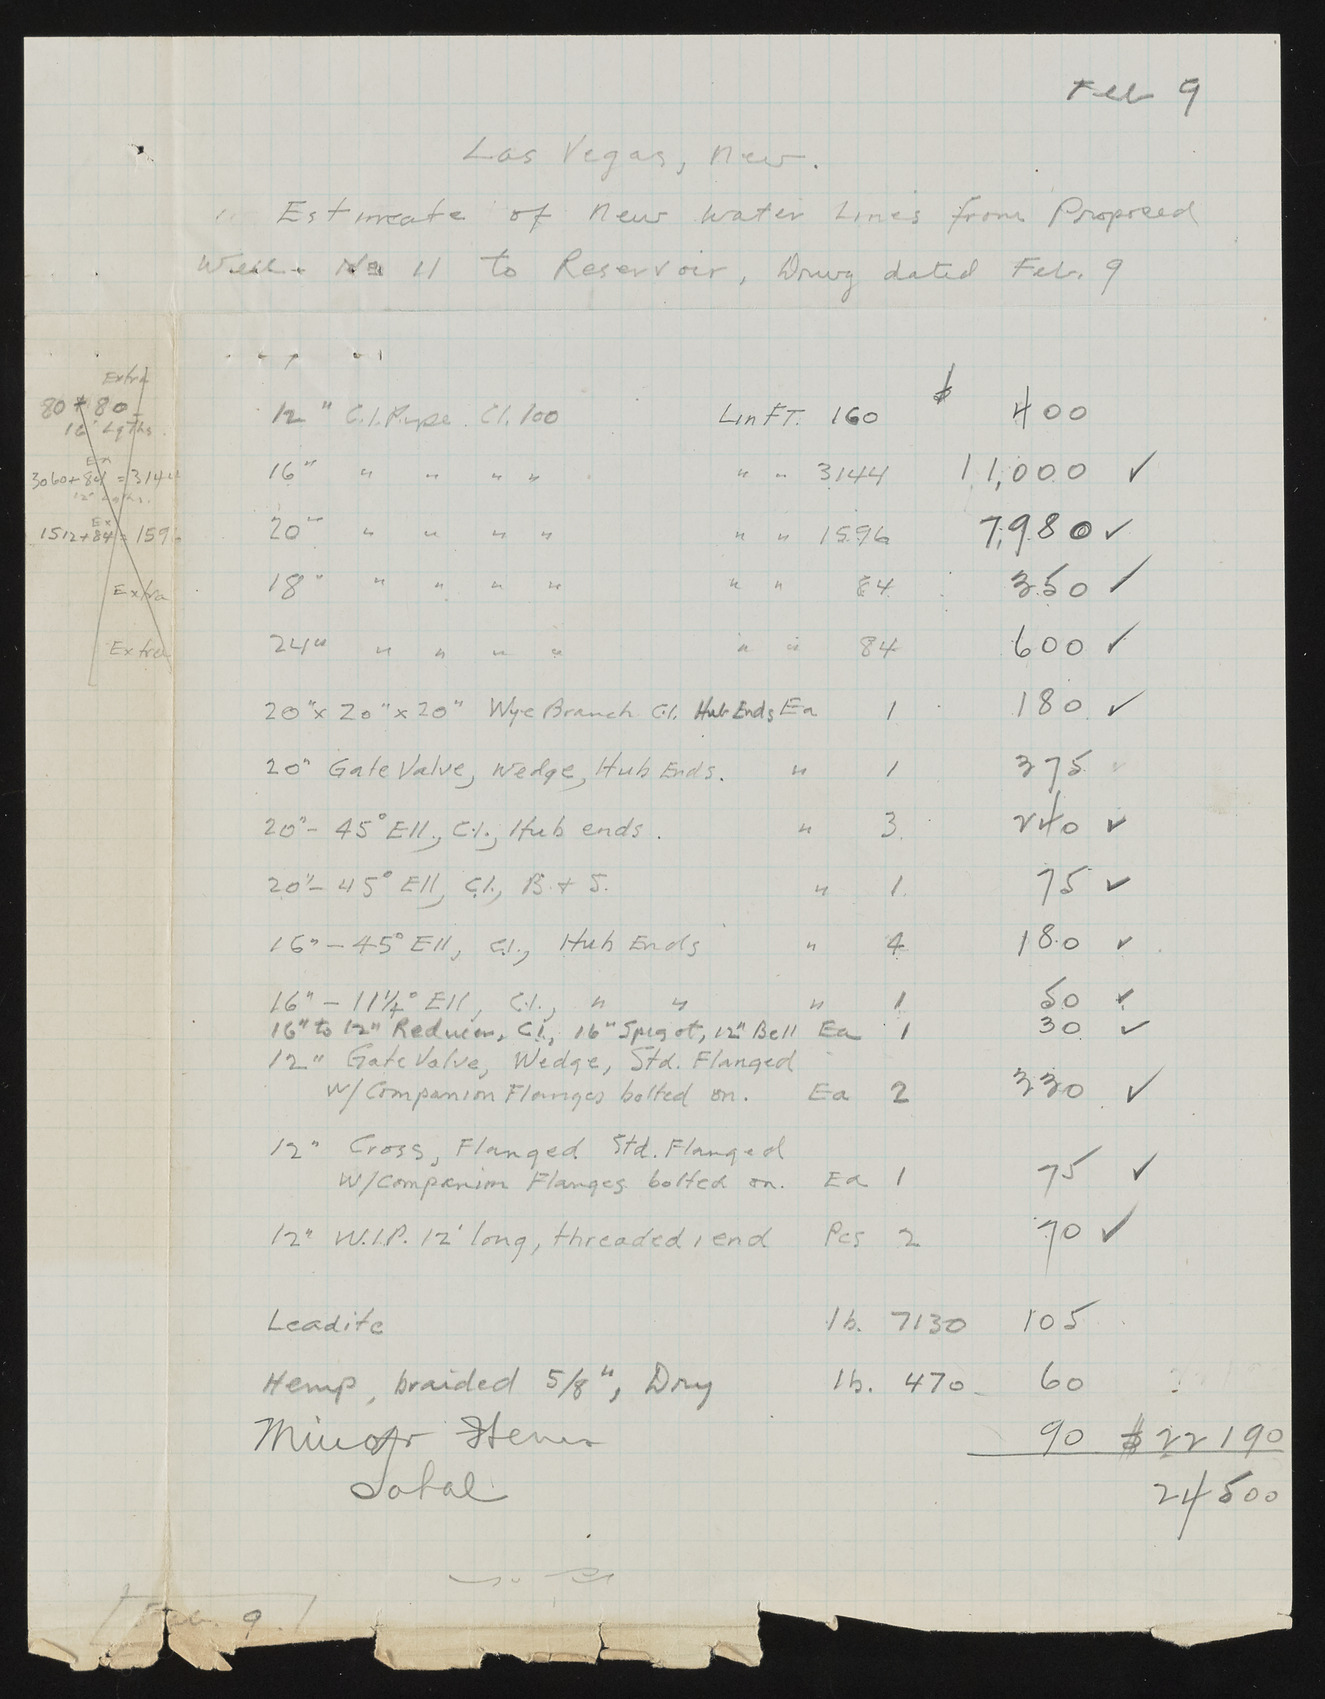 Feb 9
Las Vegas, Nev.
Estimate of New Water Lines from Proposed
Well No 11 to Reservoir, Drwg dated Feb. 9
Extra
80 + 80
16' Lgths
12" C.I. Pipe Cl. 100 Lin FT. 160 $ 400
Ex
3060+84 = 3144
12" Lgths.
16" " " " " " " 3144 11,000 ✓
Ex
1512+84 = 159
20" " " " " " " 1596 7,980 ✓
Extra
18" " " " " " " 84 350 ✓
Extra
24" " " " " " " 84 600 ✓
20" x 20" x 20" Wye Branch C.I. Hub Ends Ea 1 180 ✓
20" Gate Valve, Wedge, Hub Ends. " 1 375 ✓
20"- 45° Ell., C.I., Hub ends. " 3 240 ✓
20"- 45° Ell, C.I., B. + S. " 1 75 ✓
16" - 45° Ell, C.I., Hub Ends " 4 180 ✓
16" - 11¼° Ell, C.I., " " " 1 50 ✓
16" to 12" Reducer, C.I., 16" Spigot, 12" Bell Ea 1 30 ✓
12" Gate Valve, Wedge, Std. Flanged
W/Companion Flanges bolted on. Ea 2 330 ✓
12" Cross, Flanged Std. Flanged
W/Companion Flanges bolted on. Ea 1 75 ✓
12" W.I.P. 12' long, threaded 1 end Pcs 2 70 ✓
Leadite lb. 7130 105
Hemp, braided 5/8", Dry lb. 470 60
Minor Items 90 $22190
Total 24500
Feb. 9